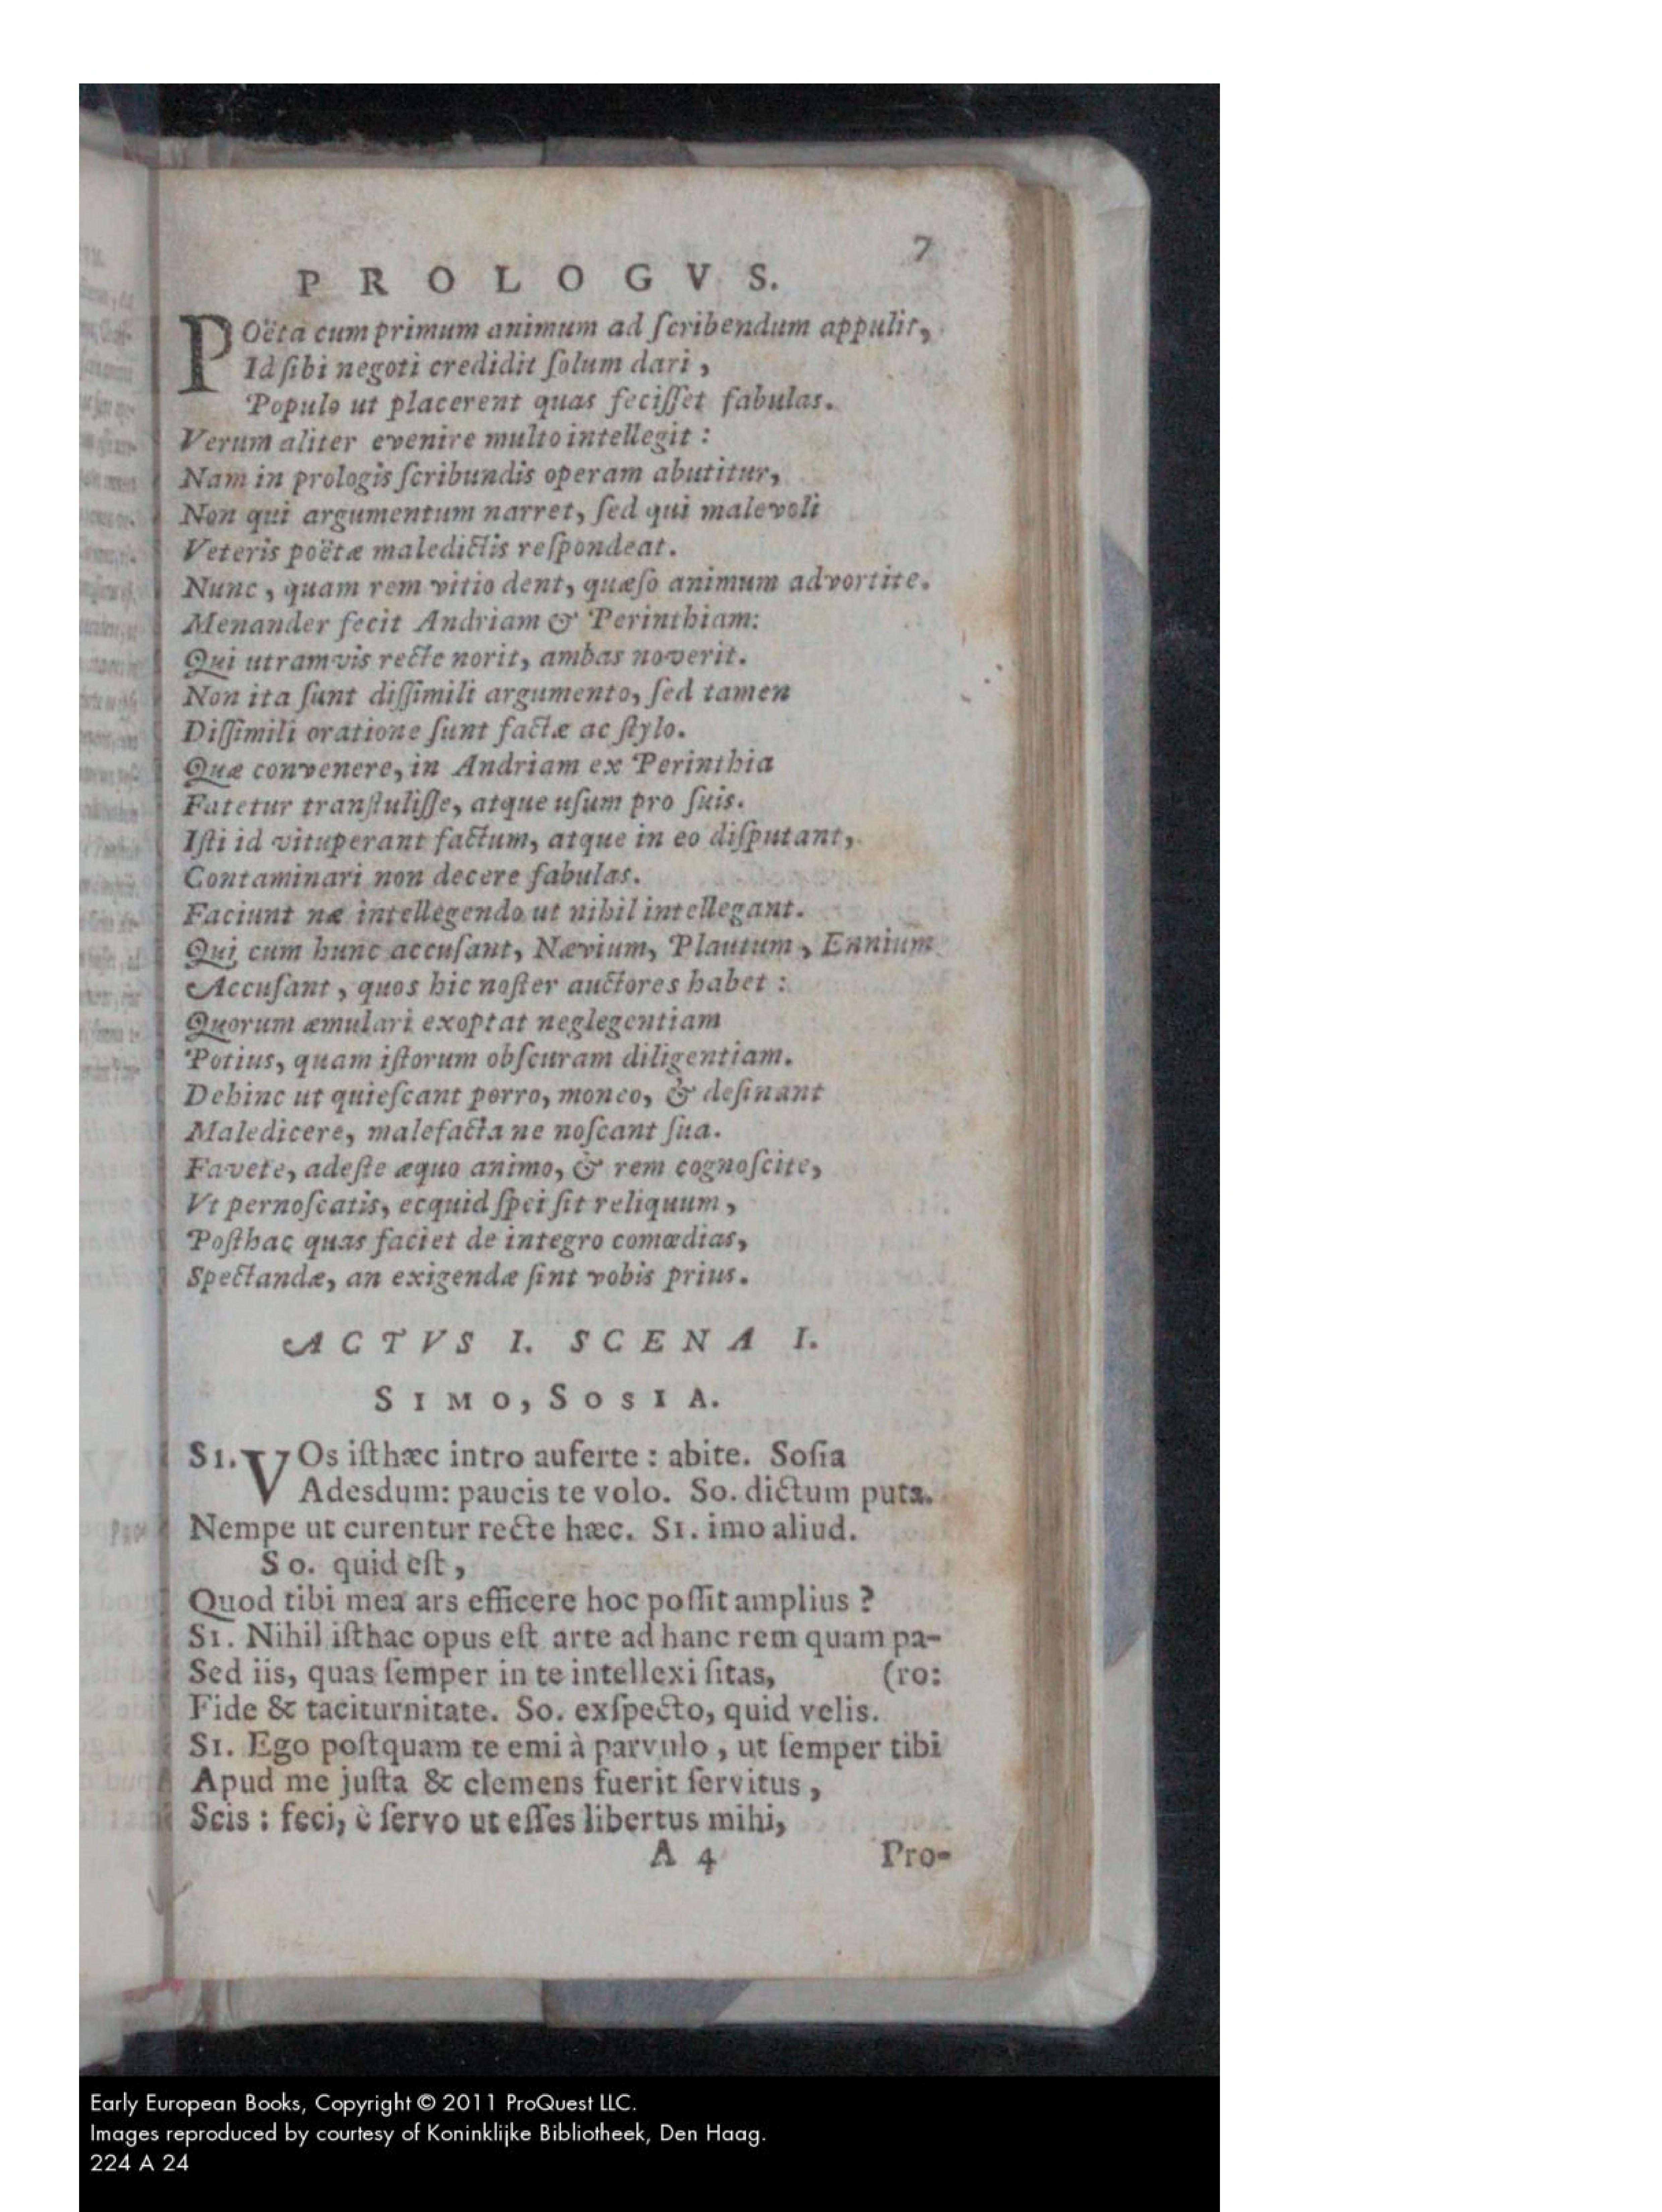 7
PROLOGVS.
POëta cum primum animum ad ſcribendum appulit,
Id ſibi negoti credidit ſolum dari,
Populo ut placerent quas feciſſet fabulas.
Verum aliter evenire multo intellegit:
Nam in prologis ſcribundis operam abutitur,
Non qui argumentum narret, ſed qui malevoli
Veteris poëtæ maledictis reſpondeat.
Nunc, quam rem vitio dent, quæſo animum advortite.
Menander fecit Andriam & Perinthiam:
Qui utramvis recte norit, ambas noverit.
Non ita ſunt diſſimili argumento, ſed tamen
Diſſimili oratione ſunt factæ ac ſtylo.
Quæ convenere, in Andriam ex Perinthia
Fatetur tranſtuliſſe, atque uſum pro ſuis.
Iſti id vituperant factum, atque in eo diſputant,
Contaminari non decere fabulas.
Faciunt næ intellegendo ut nihil intellegant.
Qui cum hunc accuſant, Nævium, Plautum, Ennium
Accuſant, quos hic noſter auctores habet:
Quorum æmulari exoptat neglegentiam
Potius, quam iſtorum obſcuram diligentiam.
Dehinc ut quieſcant porro, moneo, & deſinant
Maledicere, malefacta ne noſcant ſua.
Favete, adeſte æquo animo, & rem cognoſcite,
Vt pernoſcatis, ecquid ſpei ſit reliquum,
Poſthac quas faciet de integro comœdias,
Spectandæ, an exigendæ ſint vobis prius.
ACTVS I. SCENA I.
SIMO, SOSIA.
SI. VOs iſthæc intro auferte: abite. Soſia
Adesdum: paucis te volo. So. dictum puta.
Nempe ut curentur recte hæc. SI. imo aliud.
So. quid eſt,
Quod tibi mea ars efficere hoc poſſit amplius?
SI. Nihil iſthac opus eſt arte ad hanc rem quam pa-
Sed iis, quas ſemper in te intellexi ſitas, (ro:
Fide & taciturnitate. So. exſpecto, quid velis.
SI. Ego poſtquam te emi à parvulo, ut ſemper tibi
Apud me juſta & clemens fuerit ſervitus,
Scis: feci, è ſervo ut eſſes libertus mihi,
A 4 Pro-
Early European Books, Copyright © 2011 ProQuest LLC.
Images reproduced by courtesy of Koninklijke Bibliotheek, Den Haag.
224 A 24